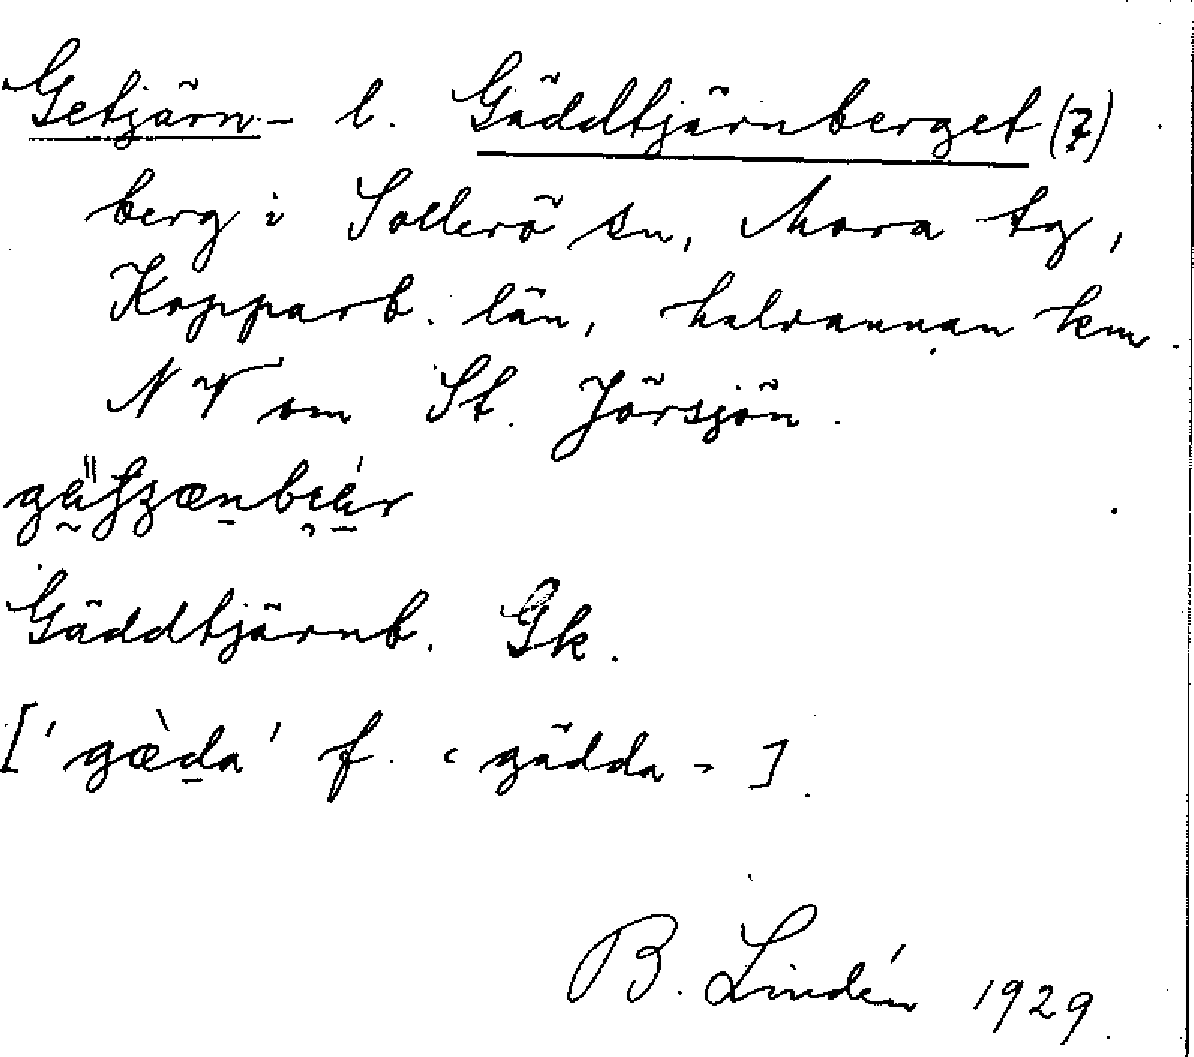 Getjärn- l. Gäddtjärnberget (?)
berg i Sollerö sn, Mora tg,
Kopparb. län, halvannan km
NV om St. Jörsjön.
Gäddtjärnb. Gk.
['gæ̀da' f. 'gädda-]
B. Lindén 1929